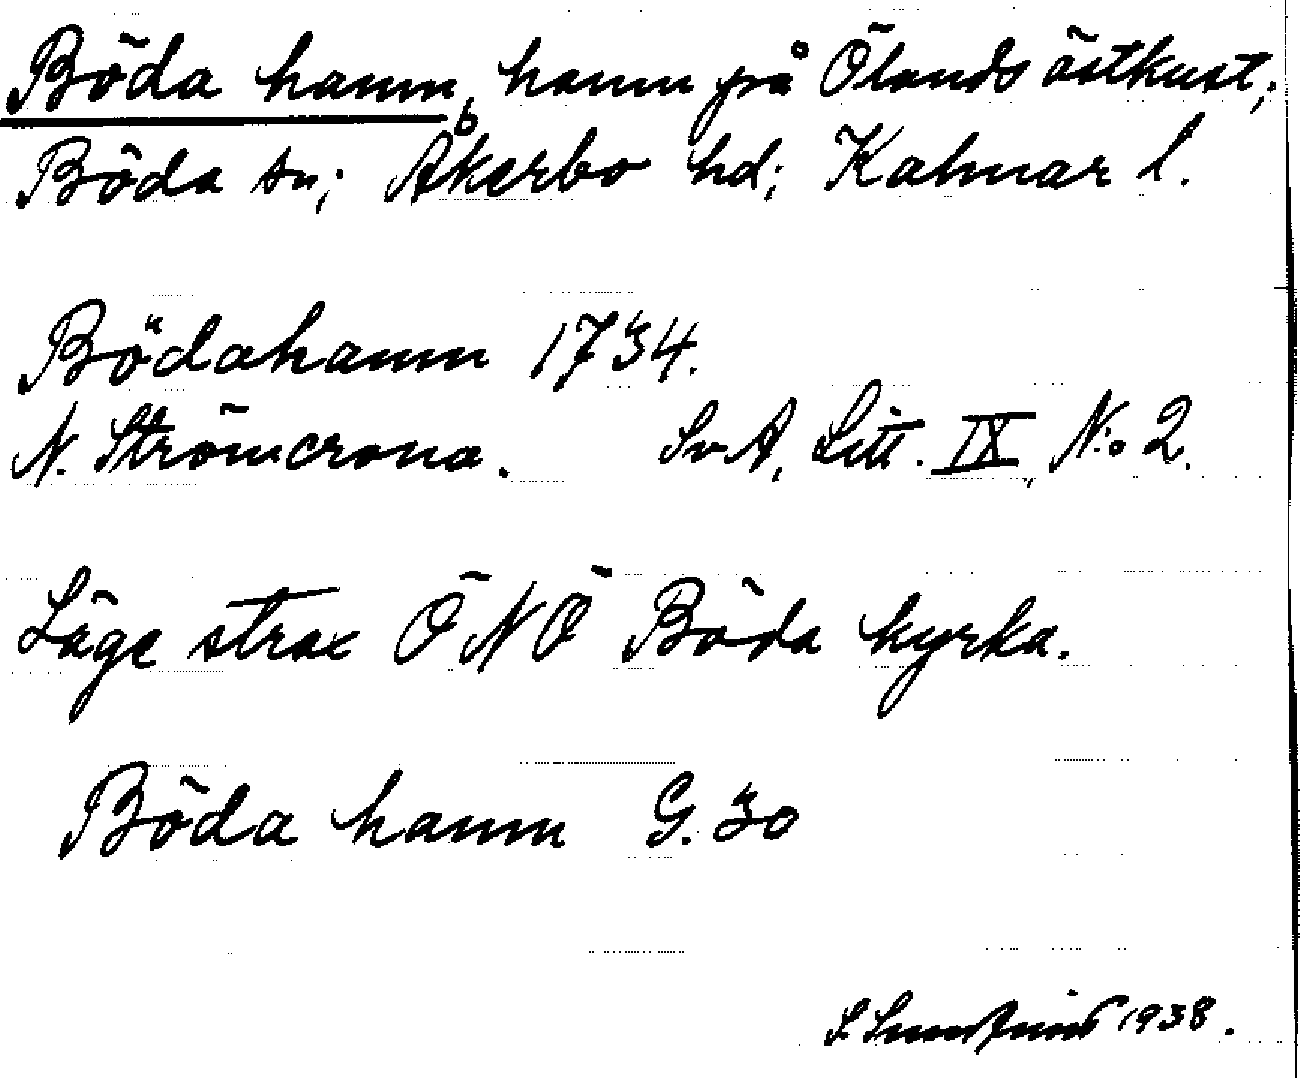 Böda hamn, hamn på Ölands östkust;
Böda sn; Åkerbo hd; Kalmar l.
Bödahamn 1734.
N. Strömcrona. SvA, Litt. IX, N:o 2.
Läge strax ÖNÖ Böda kyrka.
Böda hamn G. 30
1938.